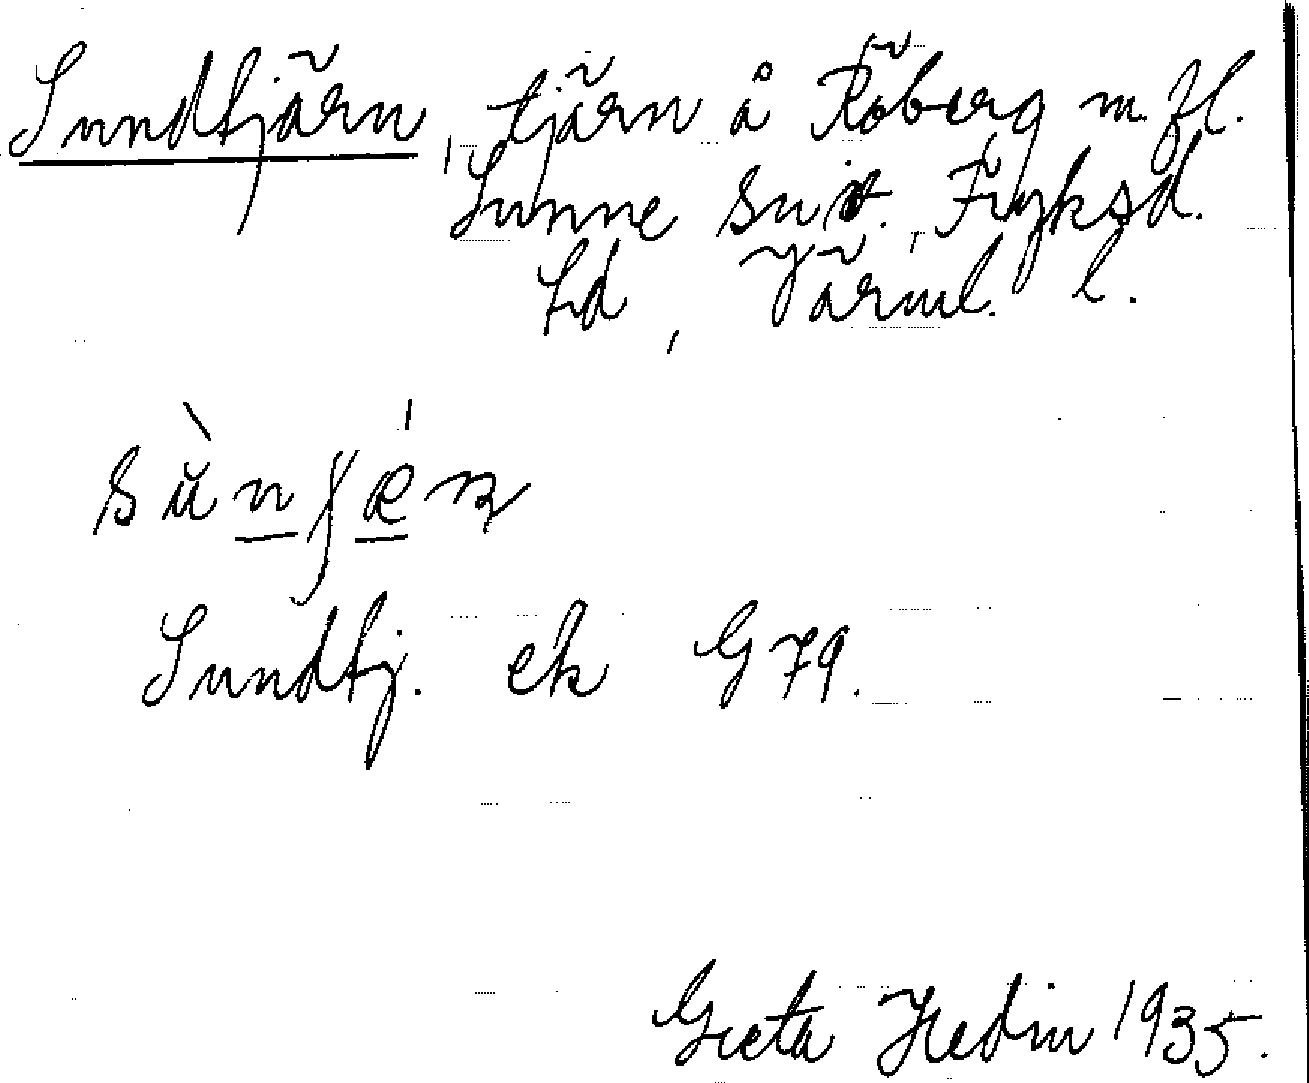 Sundtjärn, tjärn å Röberg m. fl.
Sunne sn, Fryksd.
hd, Värml. l.
Sundtj. ek G 79.
Greta Hedin 1935.